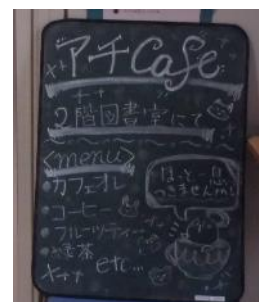 プチCafe
2階図書室にて
<menu>
・カフェオレ
・コーヒー
・フルーツティー
・お茶
etc...
ほっと一息
つきませんか?